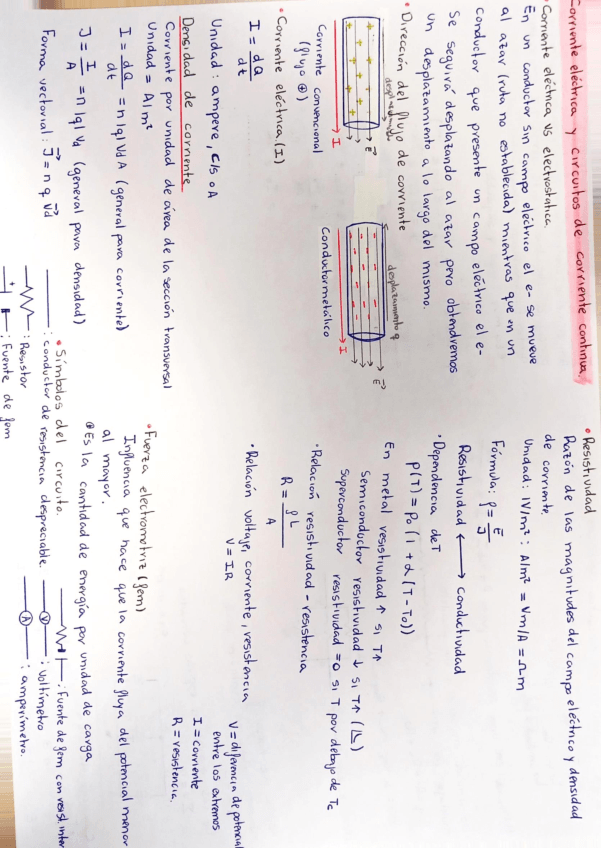 Corriente eléctrica y circuitos de corriente continua.
• Corriente eléctrica vs electrostática.
En un conductor sin campo eléctrico el e- se mueve
al azar (ruta no establecida) mientras que en un
conductor que presente un campo eléctrico el e-
se seguirá desplazando al azar pero obtendremos
un desplazamiento a lo largo del mismo.
• Dirección del flujo de corriente
desplazamiento
E
I
Corriente convencional
(flujo +)
desplazamiento q
E
I
Conductor metálico
• Corriente eléctrica (I)
I = dQ/dt
Unidad: ampere, C/s o A
Densidad de corriente
Corriente por unidad de área de la sección transversal
Unidad = A/m²
I = dQ/dt = n |q| Vd A (general para corriente)
J = I/A = n |q| Vd (general para densidad)
Forma vectorial: J = n q Vd
• Resistividad
Razón de las magnitudes del campo eléctrico y densidad
de corriente
Unidad: 1V/m² : A/m² = Vm/A = Ω m
Fórmula: ρ = E/J
Resistividad ⟷ Conductividad
• Dependencia de T
ρ(T) = ρ0 (1 + α (T - T0))
En metal resistividad ↑ si T↑
Semiconductor resistividad ↓ si T↑
Superconductor resistividad = 0 si T por debajo de Tc
• Relación resistividad - resistencia
R = ρL/A
• Relación voltaje, corriente, resistencia
V = IR
V = diferencia de potencial
entre los extremos
I = corriente
R = resistencia.
• Fuerza electromotriz (fem)
Influencia que hace que la corriente fluya del potencial menor
al mayor.
Es la cantidad de energía por unidad de carga
• Símbolos del circuito.
: conductor de resistencia despreciable.
: Resistor
+
: Fuente de fem
: Fuente de fem con resist. inter
V : Voltímetro
A : amperímetro.